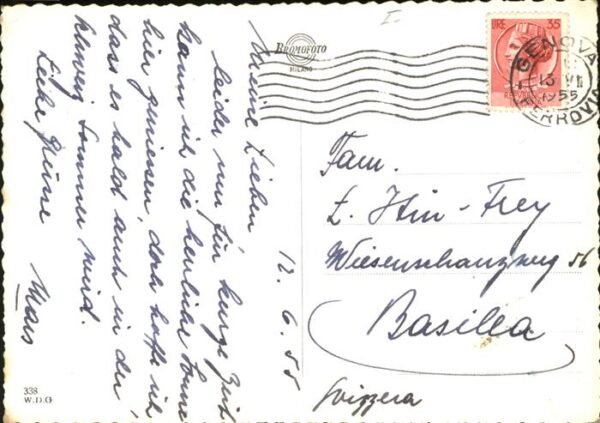 Meine Lieben 12.6.55
leider nur für kurze Zeit
kann ich die herrliche Sonne
hier geniessen, doch hoffe ich
dass es bald auch in der
Schweiz Sommer wird.
Liebe Grüsse
BROMOFOTO
MILANO
LIRE 35
GENOVA
13 VI
1955
FERROVIA
Fam.
Frey
Wiesenschanzweg 56
Basilea
Svizzera
338
W.D.G